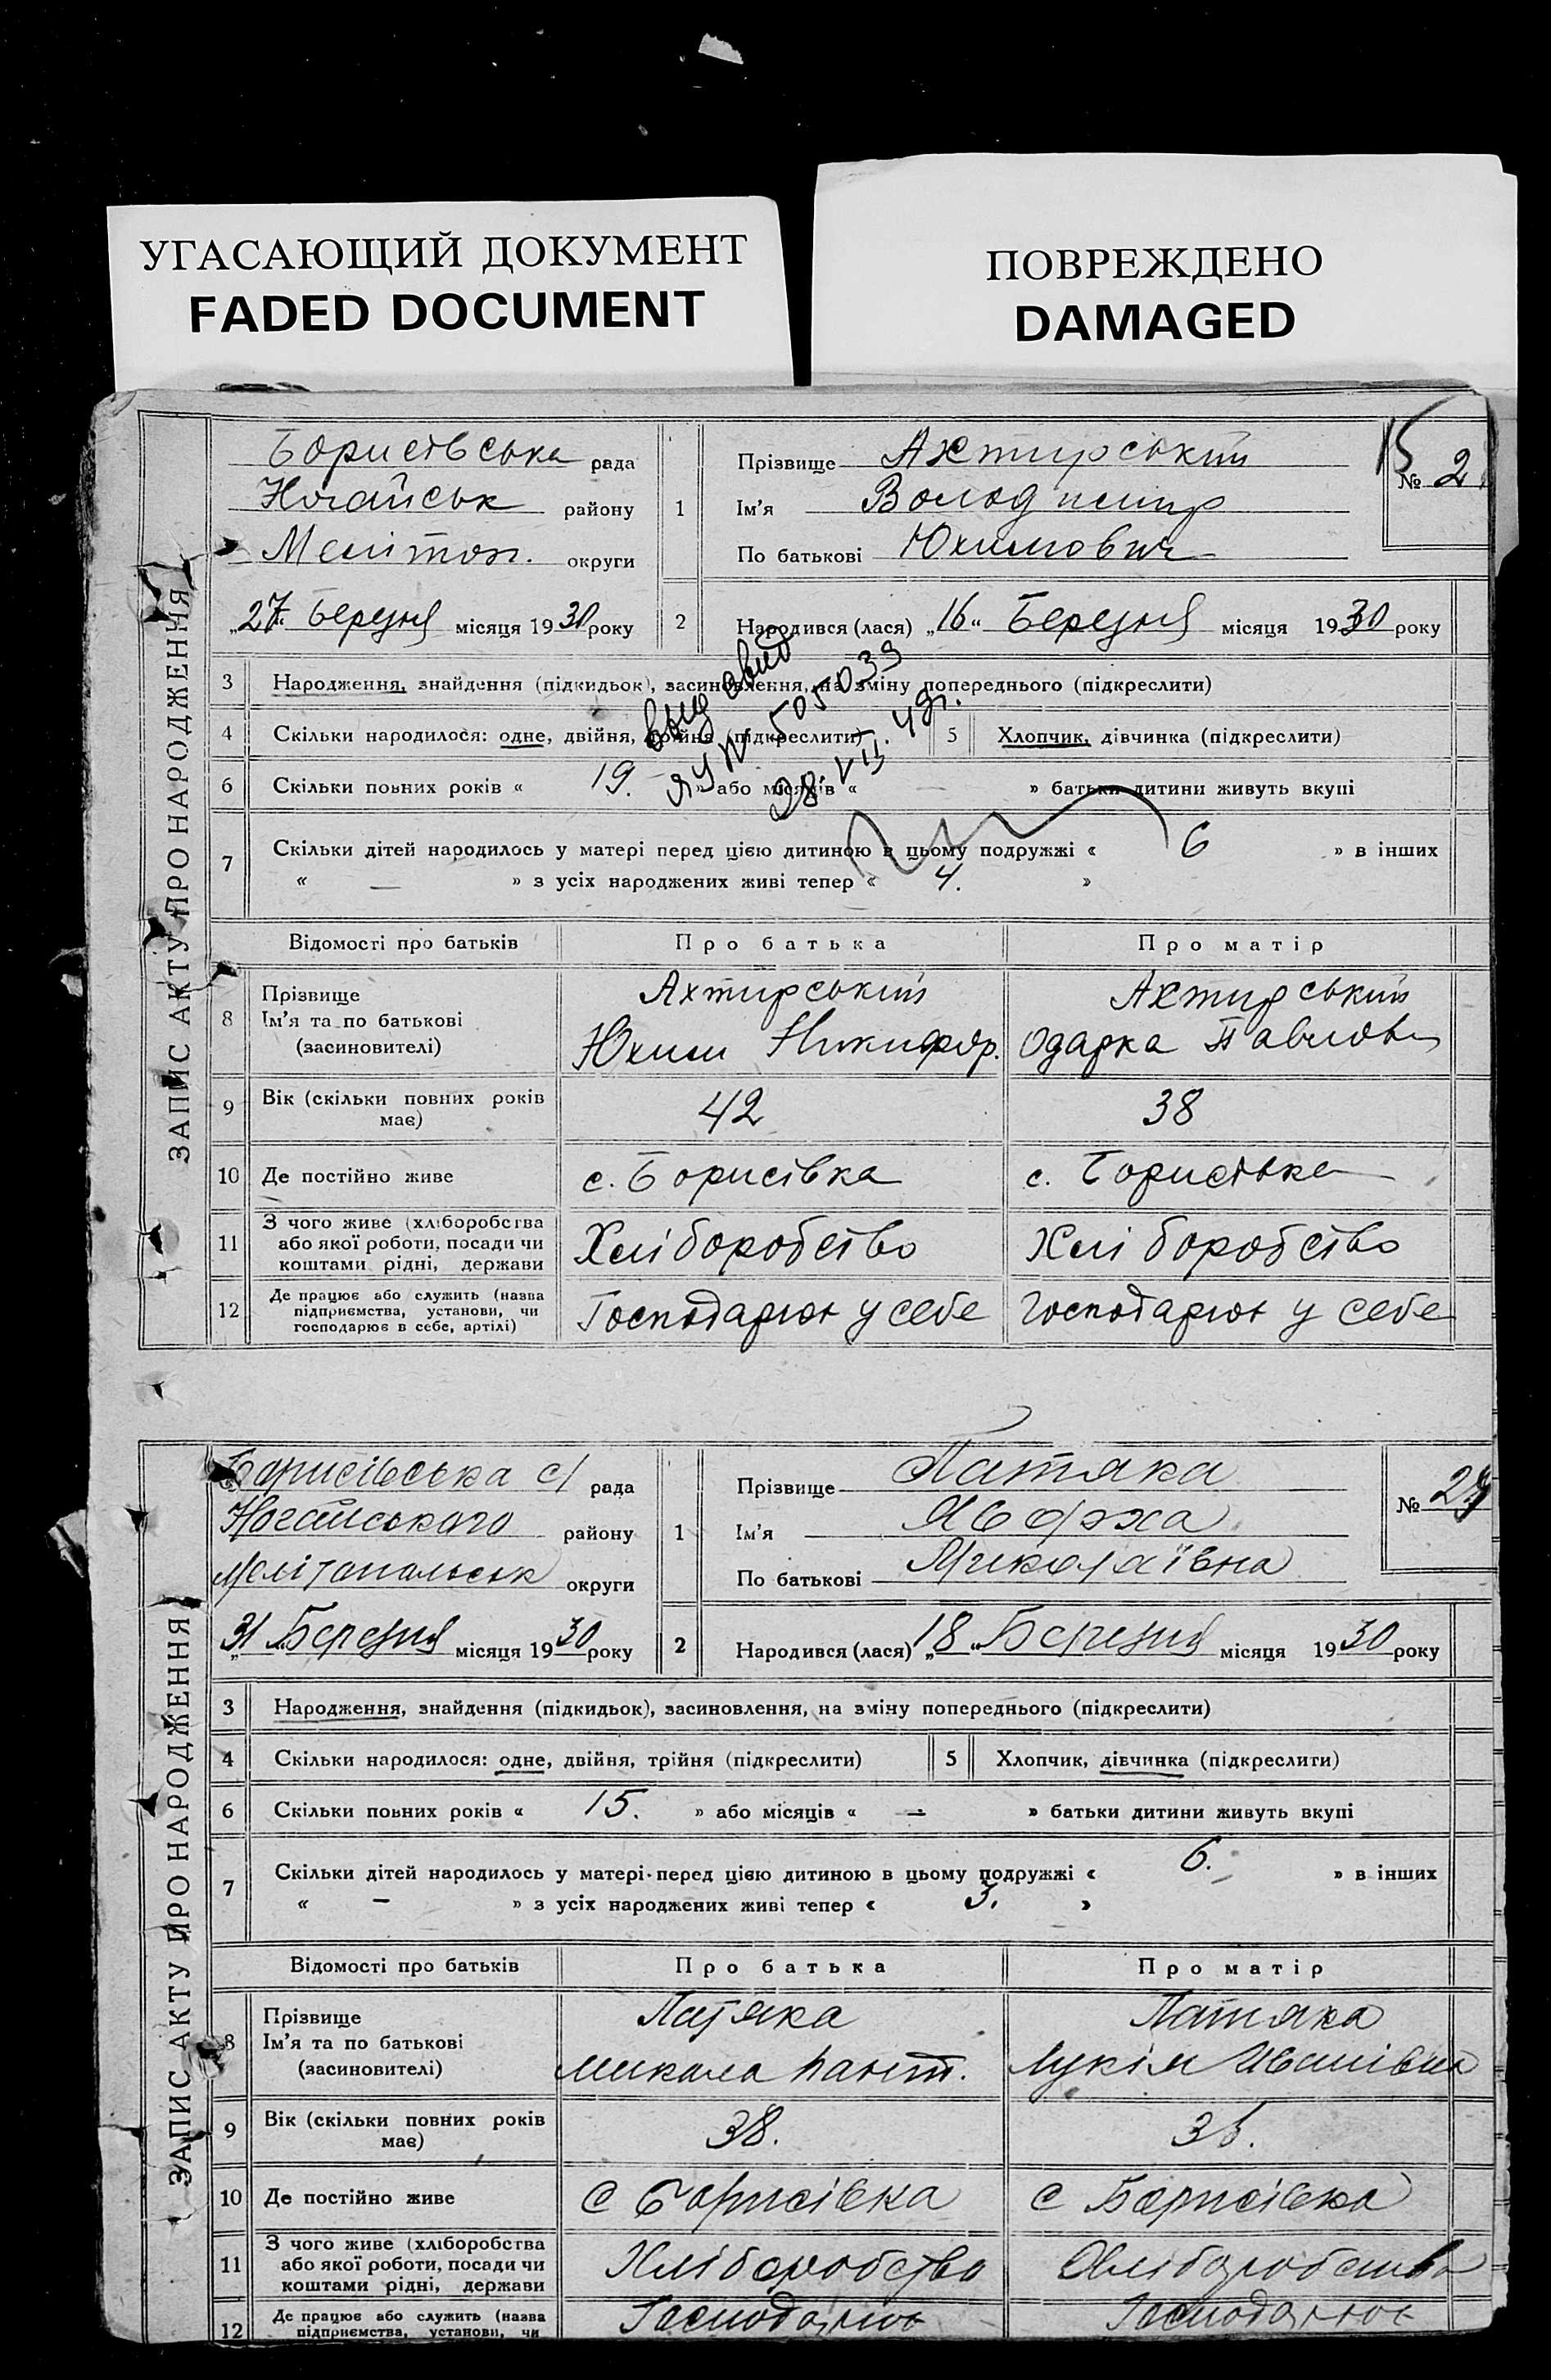 УГАСАЮЩИЙ ДОКУМЕНТ
FADED DOCUMENT
ПОВРЕЖДЕНО
DAMAGED
ЗАПИС АКТУ ПРО НАРОДЖЕННЯ
Борисівська рада
Ногайськ району
Мелітоп. округи
„27“ Березня місяця 1930 року
15
№ 2
1
Прізвище Ахтирський
Ім'я Володимир
По батькові Юхимович
2 Народився (лася) „16“ Березня місяця 1930 року
3 Народження, знайдення (підкидьок), засиновлення, на зміну попереднього (підкреслити)
4 Скільки народилося: одне, двійня, трійня (підкреслити) 5 Хлопчик, дівчинка (підкреслити)
6 Скільки повних років « 19. » або місяців « — » батьки дитини живуть вкупі
7 Скільки дітей народилось у матері перед цією дитиною в цьому подружжі « 6 » в інших
« — » з усіх народжених живі тепер « 4. »
выд свид
ЯУ № 505039
28.VII.49г.
Відомості про батьків Про батька Про матір
8 Прізвище Ахтирський Ахтирський
Ім'я та по батькові Юхим Никифор. Одарка Павлов
(засиновителі)
9 Вік (скільки повних років має) 42 38
10 Де постійно живе с. Борисівка с. Борисівка
11 З чого живе (хліборобства або якої роботи, посади чи коштами рідні, держави Хліборобство Хліборобство
12 Де працює або служить (назва підприємства, установи, чи господарює в себе, артілі) Господарює у себе Господарює у себе
ЗАПИС АКТУ ПРО НАРОДЖЕННЯ
Борисівська с/ рада
Ногайського району
Мелітопольськ округи
„31“ Березня місяця 1930 року
№ 29
1
Прізвище Патяка
Ім'я Явдоха
По батькові Миколаївна
2 Народився (лася) „18“ Березня місяця 1930 року
3 Народження, знайдення (підкидьок), засиновлення, на зміну попереднього (підкреслити)
4 Скільки народилося: одне, двійня, трійня (підкреслити) 5 Хлопчик, дівчинка (підкреслити)
6 Скільки повних років « 15. » або місяців « — » батьки дитини живуть вкупі
7 Скільки дітей народилось у матері перед цією дитиною в цьому подружжі « 6. » в інших
« — » з усіх народжених живі тепер « 3. »
Відомості про батьків Про батька Про матір
8 Прізвище Патяка Патяка
Ім'я та по батькові Микола Пант. Лукія Иванівна
(засиновителі)
9 Вік (скільки повних років має) 38.
10 Де постійно живе с Борисівка с Борисівка
11 З чого живе (хліборобства або якої роботи, посади чи коштами рідні, держави Хліборобство Хліборобство
12 Де працює або служить (назва підприємства, установи, чи Господарює Господарює